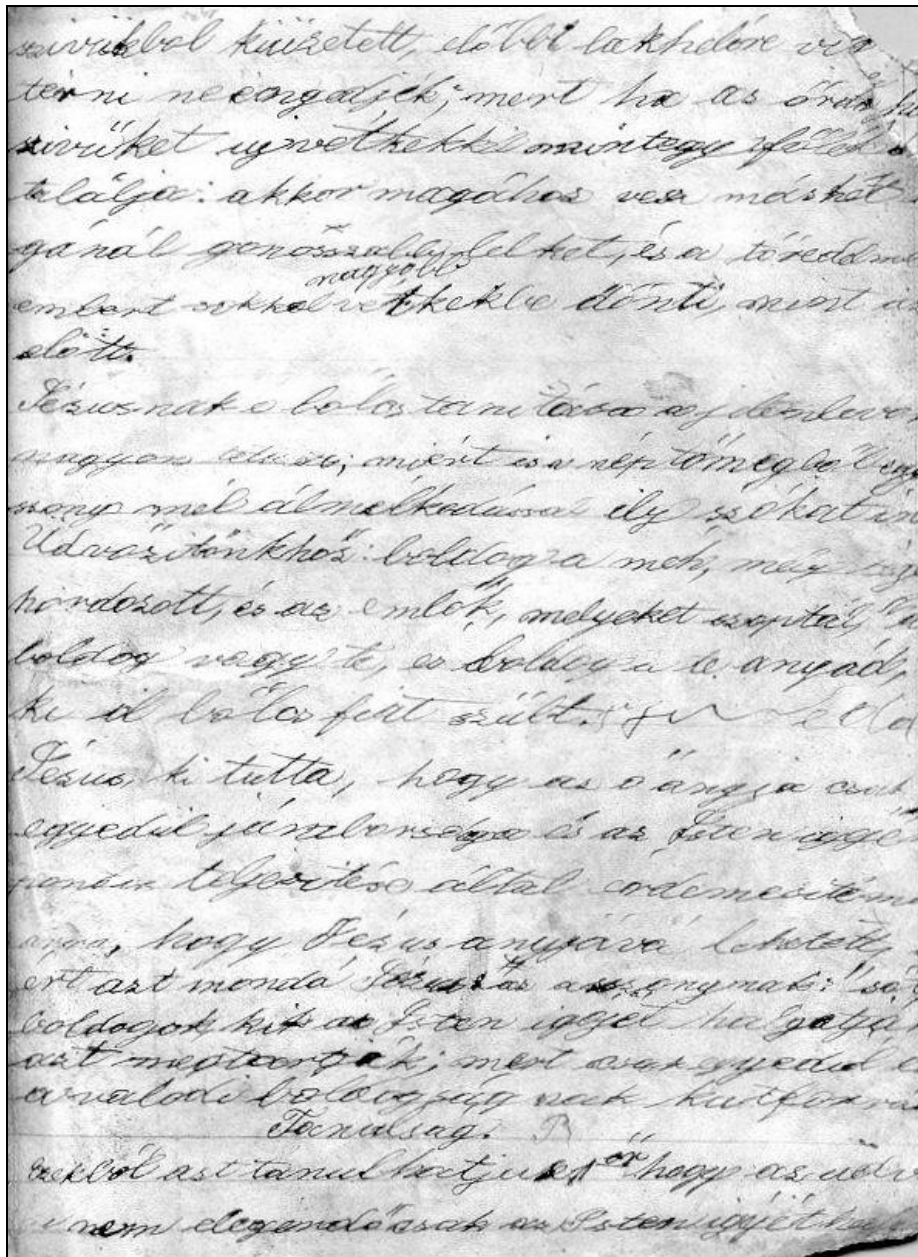 szivükből küzetett, előbbi lakhelőre vis
térni ne engedjék; mert ha az ördög
szivüket uj vétkekkel mintegy
találja: akkor magához vesz más hét
gánál gonoszabb lelket, és a töredelm
nagyobb
embert sokkal vétkekbe dönti, mint
előtt.
Jézusnak e bölcs tanitása a jelenlevő
nagyon ; miért is a néptömegből egy
szony mél álmélkodással ily szókat in
Üdvözitönkhöz: boldog a méh, mely
hordozott, és az emlők, melyeket szoptál,
boldog vagy te, és boldog a te anyád,
ki il bölcs fiat szült.
Jézus, ki tutta, hogy az ő anyja csak
egyedül jámborsága és az Isten iggé
teljesitése által érdemesitém
anya, hogy Jézus anyjává lehetett,
ért azt mondá Jézus az asszonynak: "
boldogok, kik az Isten iggét halgatjá
azt megtartják; mert csak egyedül
a valodi boldogság nak kutforrá
Tanulság.
Ezekből azt tanulhatjuk, 1ör hogy az üdv
nem elegendő csak az Isten igéjét